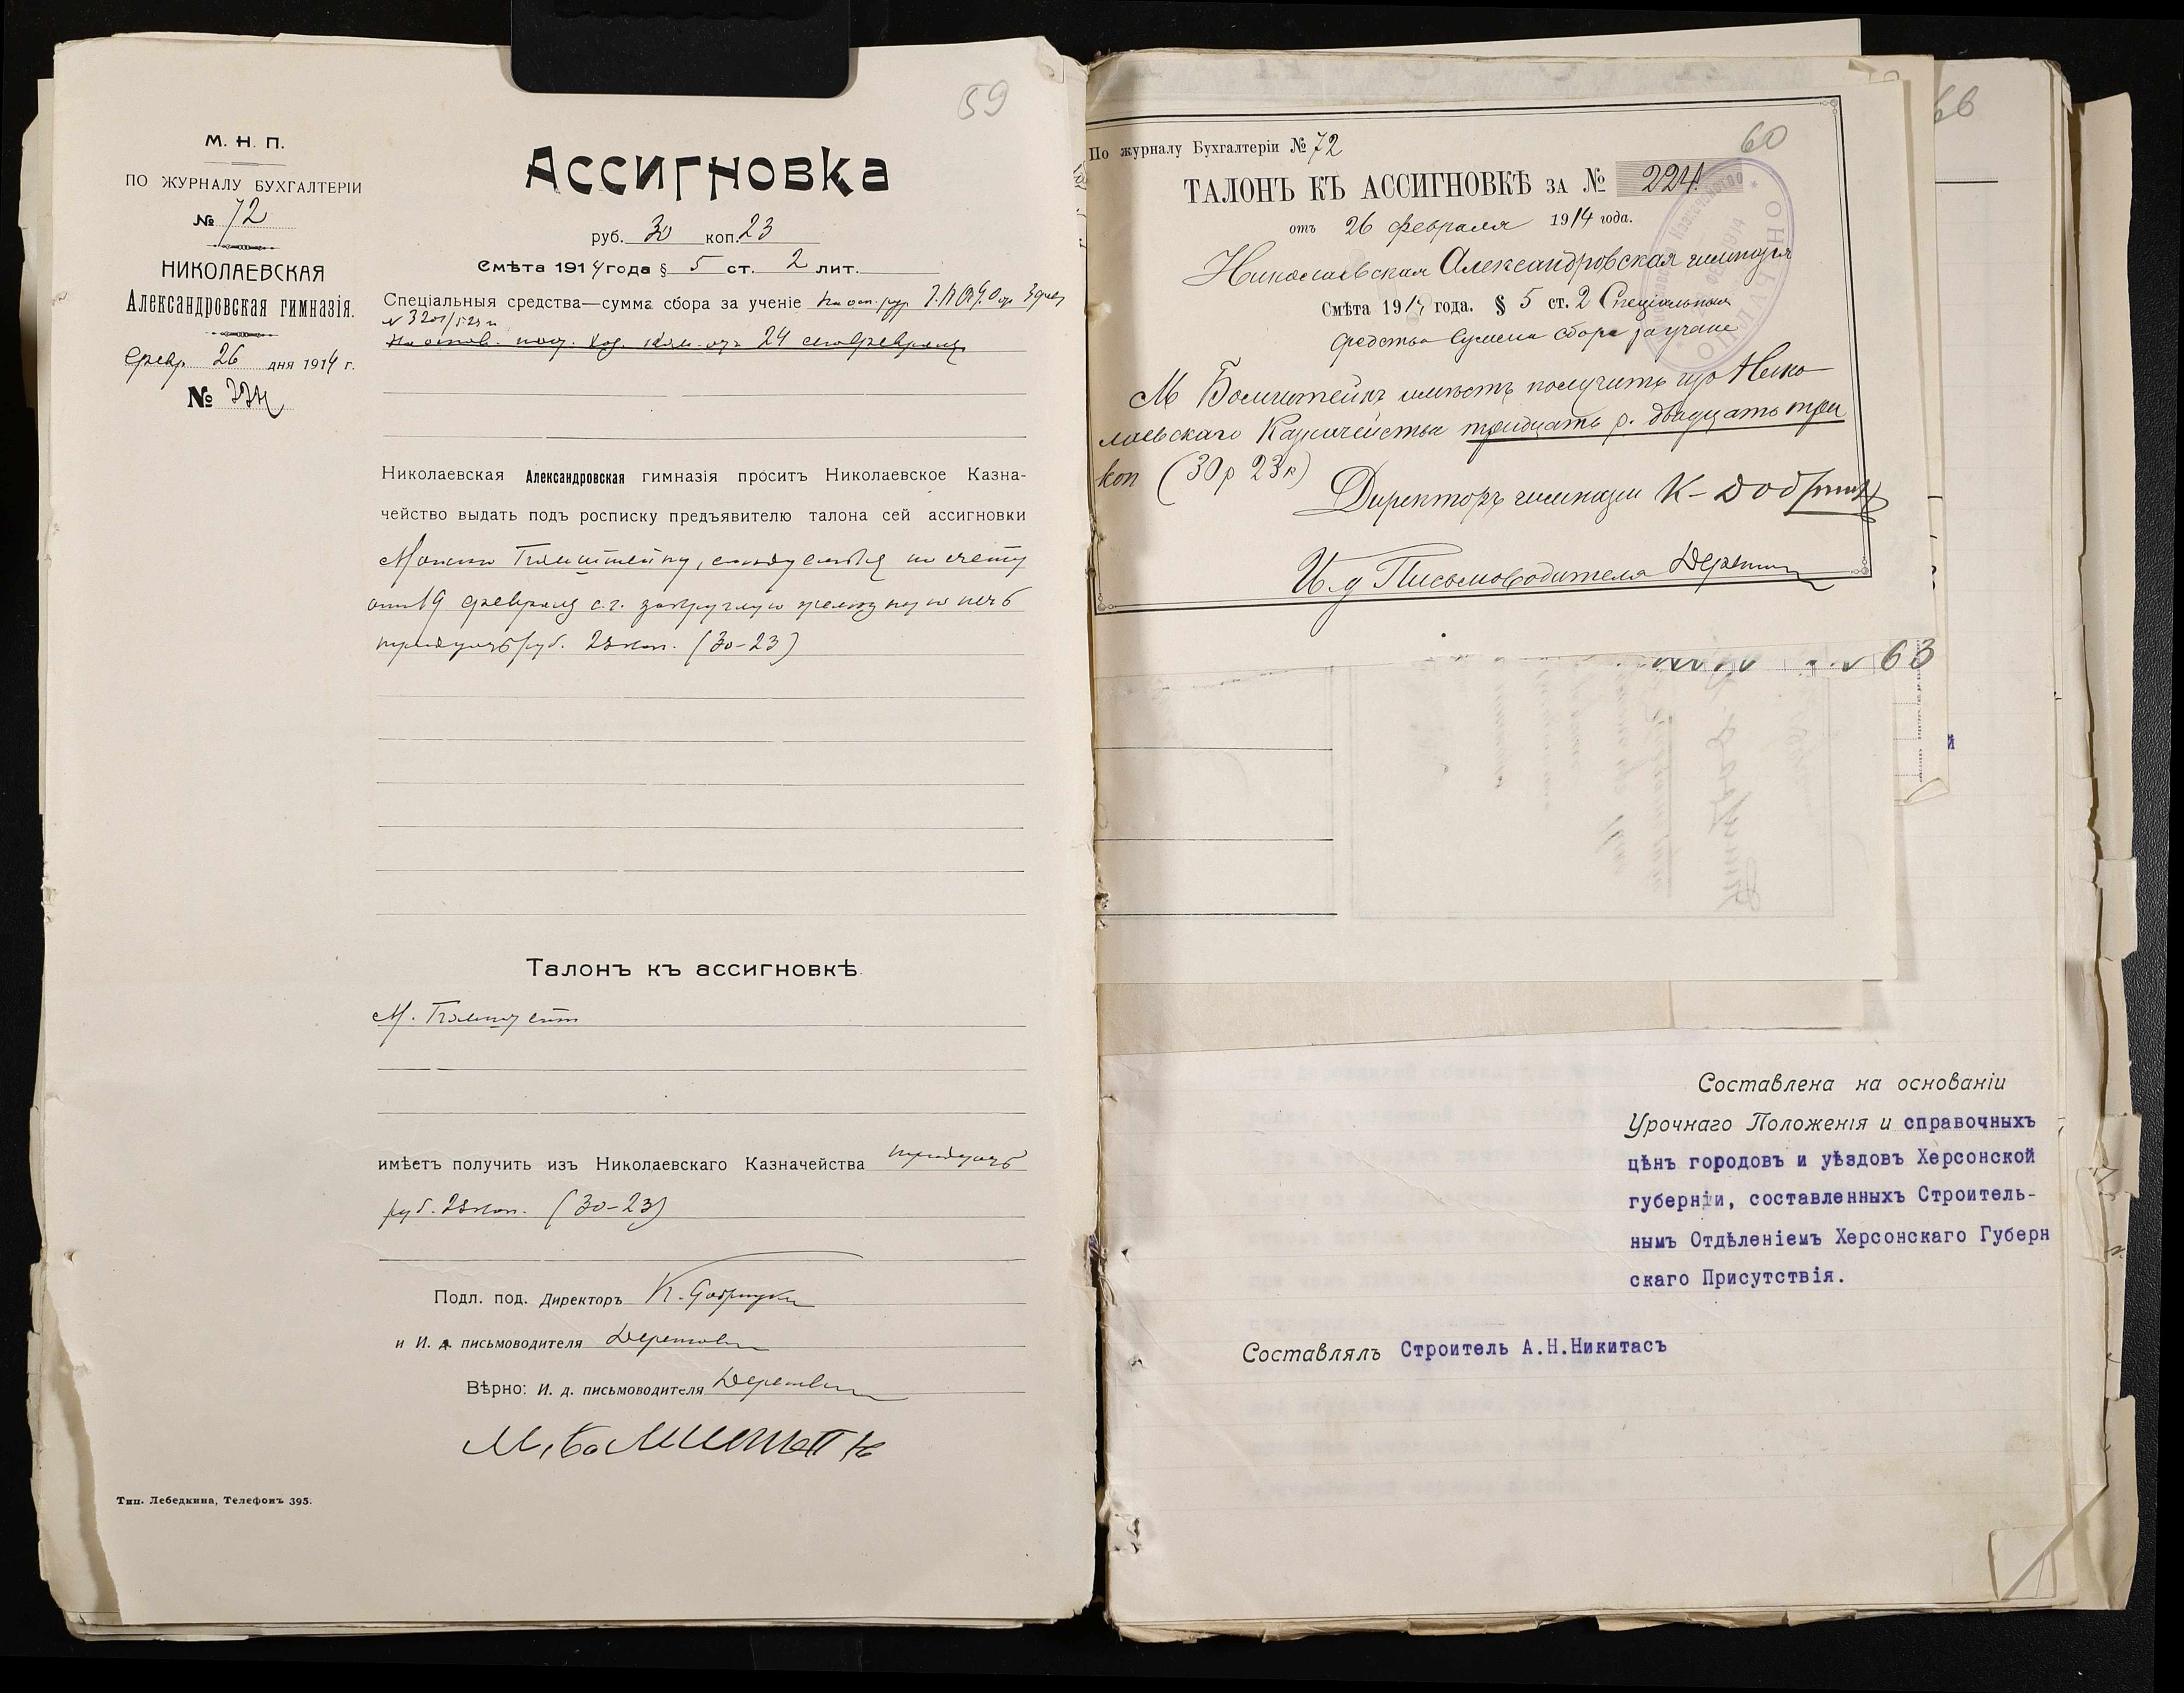 59
М. Н. П.
ПО ЖУРНАЛУ БУХГАЛТЕРІИ
№ 72
НИКОЛАЕВСКАЯ
Александровская гимназія.
Февр. 26 дня 1914 г.
№ 224
Ассигновка
руб. 30 коп. 23
Смѣта 1914 года § 5 ст. 2 лит.
Спеціальныя средства—сумма сбора за ученіе
№ 3201
24 февраля
Николаевская Александровская гимназія проситъ Николаевское Казна-
чейство выдать подъ росписку предъявителю талона сей ассигновки
по счету
от 19 февраля с.г. за круглую желѣзную печь
тридцать руб. 23 коп. (30-23)
Талонъ къ ассигновкѣ.
М.
имѣетъ получить изъ Николаевскаго Казначейства тридцать
руб. 23 коп. (30-23)
Подл. под. Директоръ К.
и И. д. письмоводителя
Вѣрно: И. д. письмоводителя
Тип. Лебедкина, Телефонъ 395.
60
По журналу Бухгалтеріи № 72
ТАЛОНЪ КЪ АССИГНОВКѢ ЗА № 224
отъ 26 февраля 1914 года.
Николаевская Александровская гимназія
Смѣта 1914 года. § 5 ст. 2 Спеціальныя
средства Сумма сбора за учение
М Бомштейнъ имѣетъ получить изъ Нико-
лаевскаго Казначейства тридцать р. двадцать три
коп (30 р 23 к)
Директоръ гимназіи К.
И. д Письмоводителя
63
66
Составлена на основаніи
Урочнаго Положенія и справочныхъ
цѣнъ городовъ и уѣздовъ Херсонской
губерніи, составленныхъ Строитель-
нымъ Отдѣленіемъ Херсонскаго Губерн
скаго Присутствія.
Составлялъ Строитель А.Н.Никитасъ